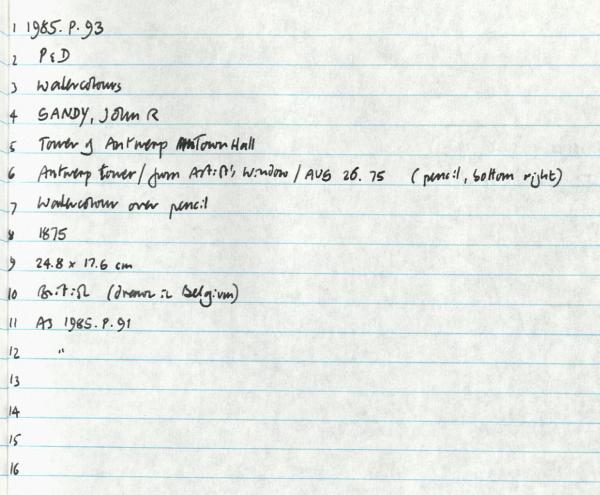 1 1985.P.93
2 P&D
3 Watercolours
4 SANDY, John R
5 Tower of Antwerp Town Hall
6 Antwerp tower / from Artist's Window / AUG 26. 75 (pencil, bottom right)
7 Watercolour over pencil
8 1875
9 24.8 x 17.6 cm
10 British (drawn in Belgium)
11 AS 1985.P.91
12 "
13
14
15
16